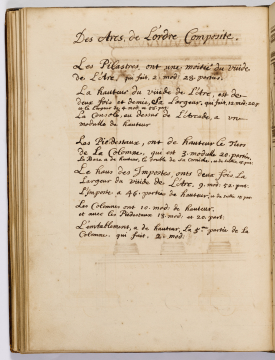 Des Arcs, de L'ordre Composite.
Les Pilastres, ont une moitié du vuide
de L'Arc, qui fait, 2. mod. 28. parties.
La hauteur du vuide de L'Arc, est de
deux fois et demie, La Largeur, qui fait,
La Console, au dessus de L'Arcade, a un
modulle de hauteur
Les Piedestaux, ont de hauteur le tiers
de La Colonne, qui est 3. modulle 20. parties,
La Base, a de hauteur, le double de sa Corniche,
Le haus des Impostes, onts deux fois La
Largeur du vuide des L'Arc. 9. mod. 52. part.
L'imposte a 46. parties de hauteur,
Les Colonnes ont 10. mod. de hauteur,
et avec les Piédestaux 13. mod. et 20. part.
L'entablement, a de hauteur, La 5.me partie de La
Colonne, qui fait. 2. mod.